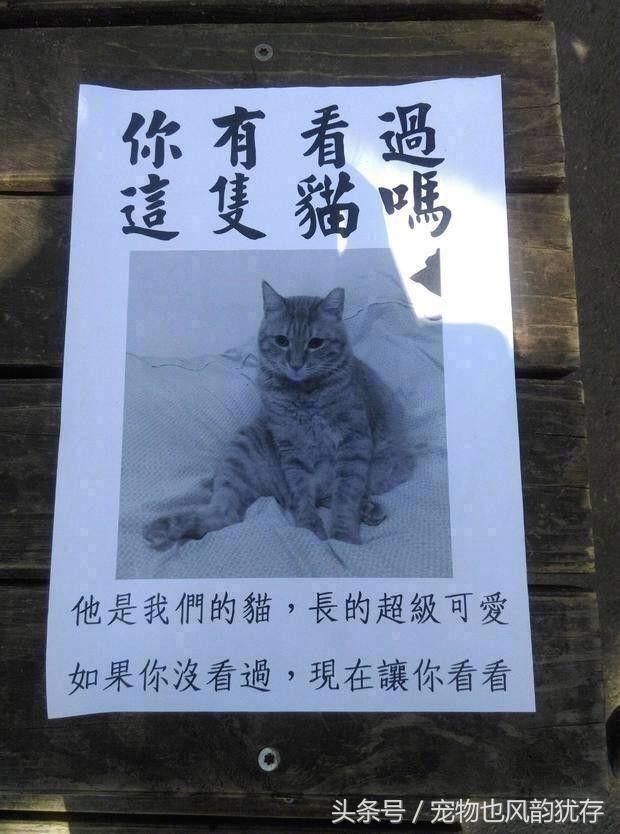 你有看過
這隻貓嗎
他是我們的貓，長的超級可愛
如果你沒看過，現在讓你看看
头条号／宠物也风韵犹存